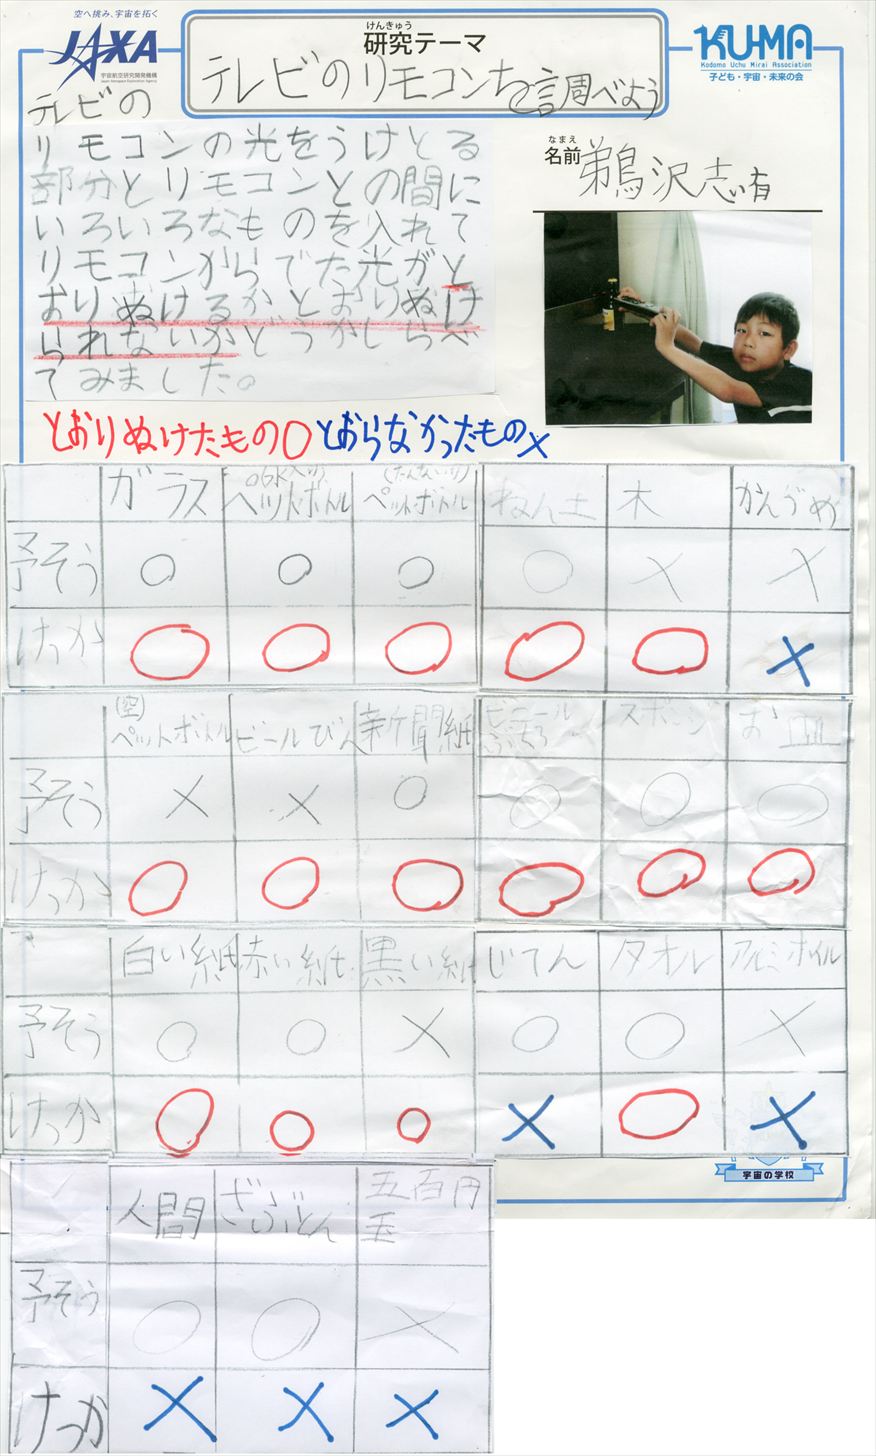 空へ挑み、宇宙を拓く
JAXA
宇宙航空研究開発機構
Japan Aerospace Exploration Agency
けんきゅう
研究テーマ
テレビのリモコンを調べよう
KU-MA
Kodomo Uchu Mirai Association
子ども・宇宙・未来の会
なまえ
名前 鵜沢志有
テレビの
リモコンの光をうけとる
部分とリモコンとの間に
いろいろなものを入れて
リモコンからでた光がと
おりぬけるかとおりぬけ
られないかどうかしらべ
てみました。
とおりぬけたもの○とおらなかったもの×
ガラス ペットボトル ペットボトル ねん土 木 かんづめ
予そう ○ ○ ○ ○ × ×
けっか ○ ○ ○ ○ ○ ×
(空)ペットボトル ビールびん 新聞紙 ビニールぶくろ スポンジ お皿
予そう × × ○ ○ ○ ○
けっか ○ ○ ○ ○ ○ ○
白い紙 赤い紙 黒い紙 じてん タオル アルミホイル
予そう ○ ○ × ○ ○ ×
けっか ○ ○ ○ × ○ ×
宇宙の学校
人間 ざぶとん 五百円玉
予そう ○ ○ ×
けっか × × ×